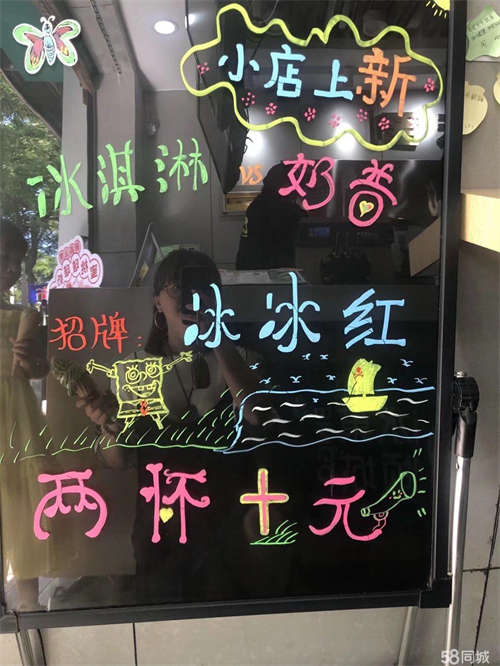 小店上新
冰淇淋 VS 奶香
招牌: 冰冰红
两怀十元
58同城